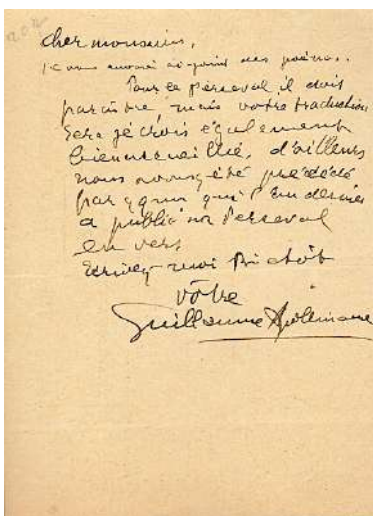 cher monsieur,
je vous envoie ci-joint des poèmes.
Pour le Perceval, il doit
paraître, mais votre traduction
sera je crois également
bien accueillie, d'ailleurs
nous avons été précédé
par qqun qui l'an dernier
a publié un Perceval
en vers
Ecrivez-moi Bientôt
vôtre
Guillaume Apollinaire